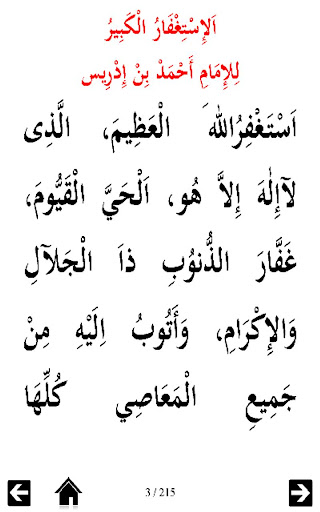 اَلإِسْتِغْفَارُ الْكَبِيرُ
لِلإِمَامِ أَحْمَدْ بِنْ إِدْرِيس
اَسْتَغْفِرُالله َ الْعَظِيمَ، الَّذِى
لآإِلٰهَ إِلاَّ هُو، اَلْحَيَّ الْقَيُّومَ،
غَفَّارَ الذُّنوُبِ ذاَ الْجَلآلِ
وَالإِكْرَامِ، وَأَتُوبُ اِلَيْهِ مِنْ
جَمِيعِ الْمَعَاصِي كُلِّهَا
3 / 215